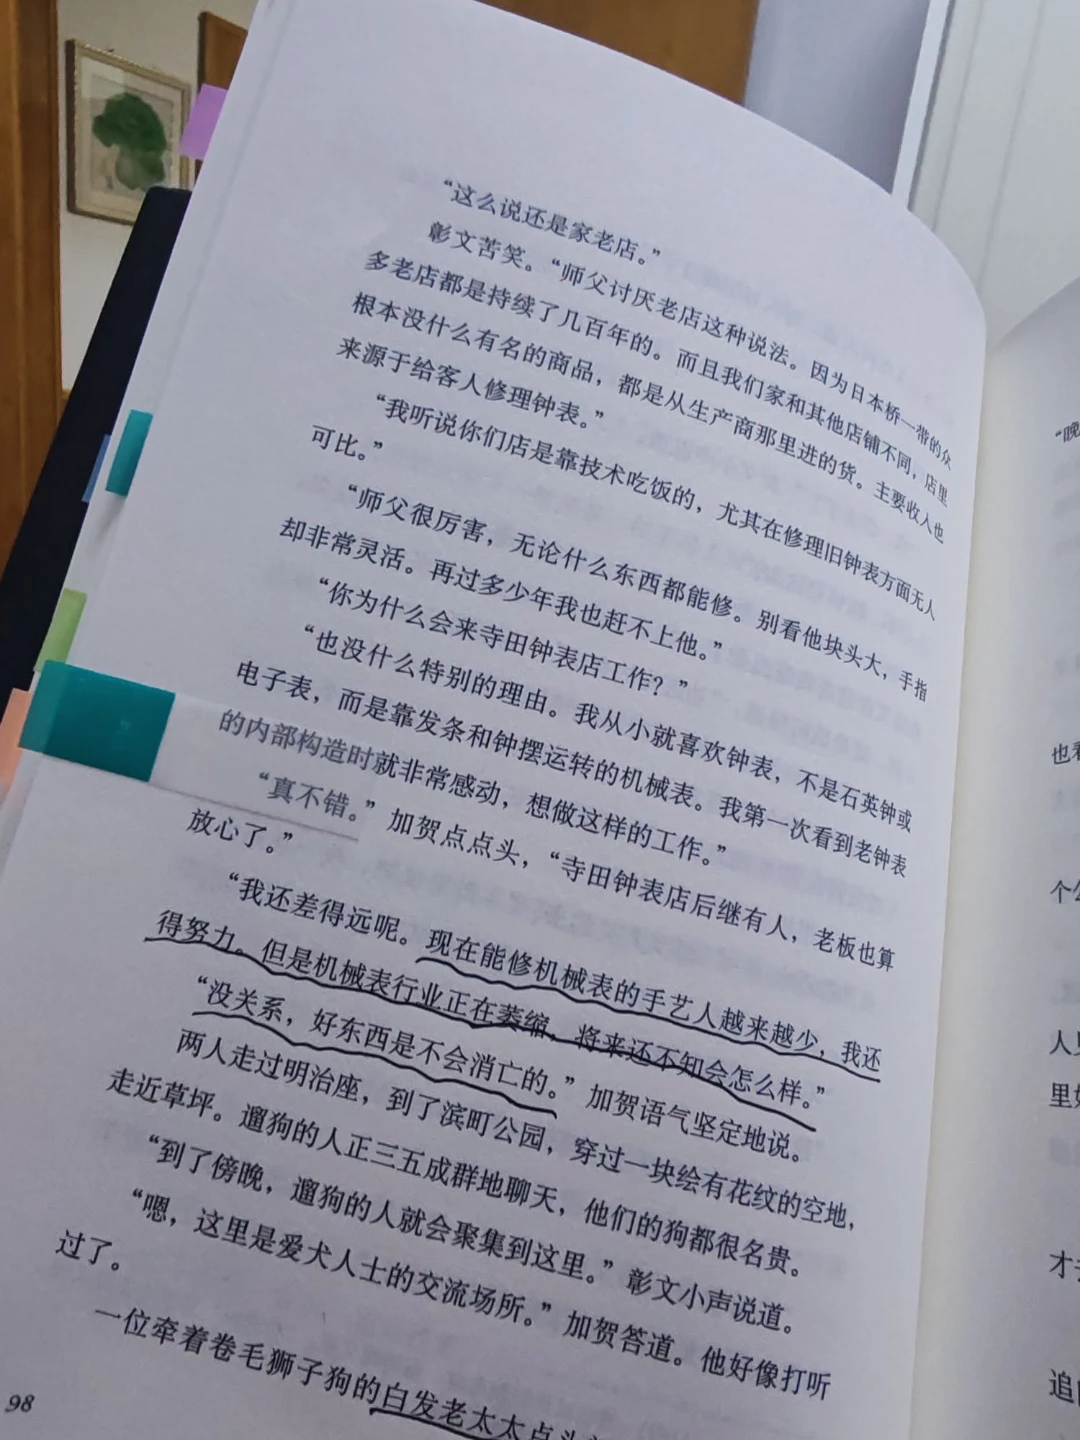 “这么说还是家老店。”
彰文苦笑。“师父讨厌老店这种说法。因为日本桥一带的众
多老店都是持续了几百年的。而且我们家和其他店铺不同，店里
根本没什么有名的商品，都是从生产商那里进的货。主要收入也
来源于给客人修理钟表。”
“我听说你们店是靠技术吃饭的，尤其在修理旧钟表方面无人
可比。”
“师父很厉害，无论什么东西都能修。别看他块头大，手指
却非常灵活。再过多少年我也赶不上他。”
“你为什么会来寺田钟表店工作？”
“也没什么特别的理由。我从小就喜欢钟表，不是石英钟或
电子表，而是靠发条和钟摆运转的机械表。我第一次看到老钟表
的内部构造时就非常感动，想做这样的工作。”
“真不错。”加贺点点头，“寺田钟表店后继有人，老板也算
放心了。”
“我还差得远呢。现在能修机械表的手艺人越来越少，我还
得努力。但是机械表行业正在萎缩，将来还不知会怎么样。”
“没关系，好东西是不会消亡的。”加贺语气坚定地说。
两人走过明治座，到了滨町公园，穿过一块绘有花纹的空地，
走近草坪。遛狗的人正三五成群地聊天，他们的狗都很名贵。
“到了傍晚，遛狗的人就会聚集到这里。”彰文小声说道。
“嗯，这里是爱犬人士的交流场所。”加贺答道。他好像打听
过了。
一位牵着卷毛狮子狗的白发老太太点头
98
“晚
也看
个公
人
里
才
追